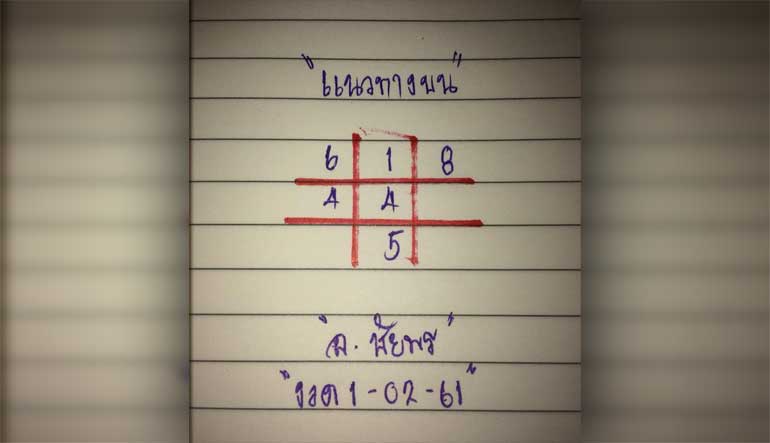 "แนวทางบน"
6 1 8
4 4
5
"อ. ชัยพร"
"งวด 1-02-61"